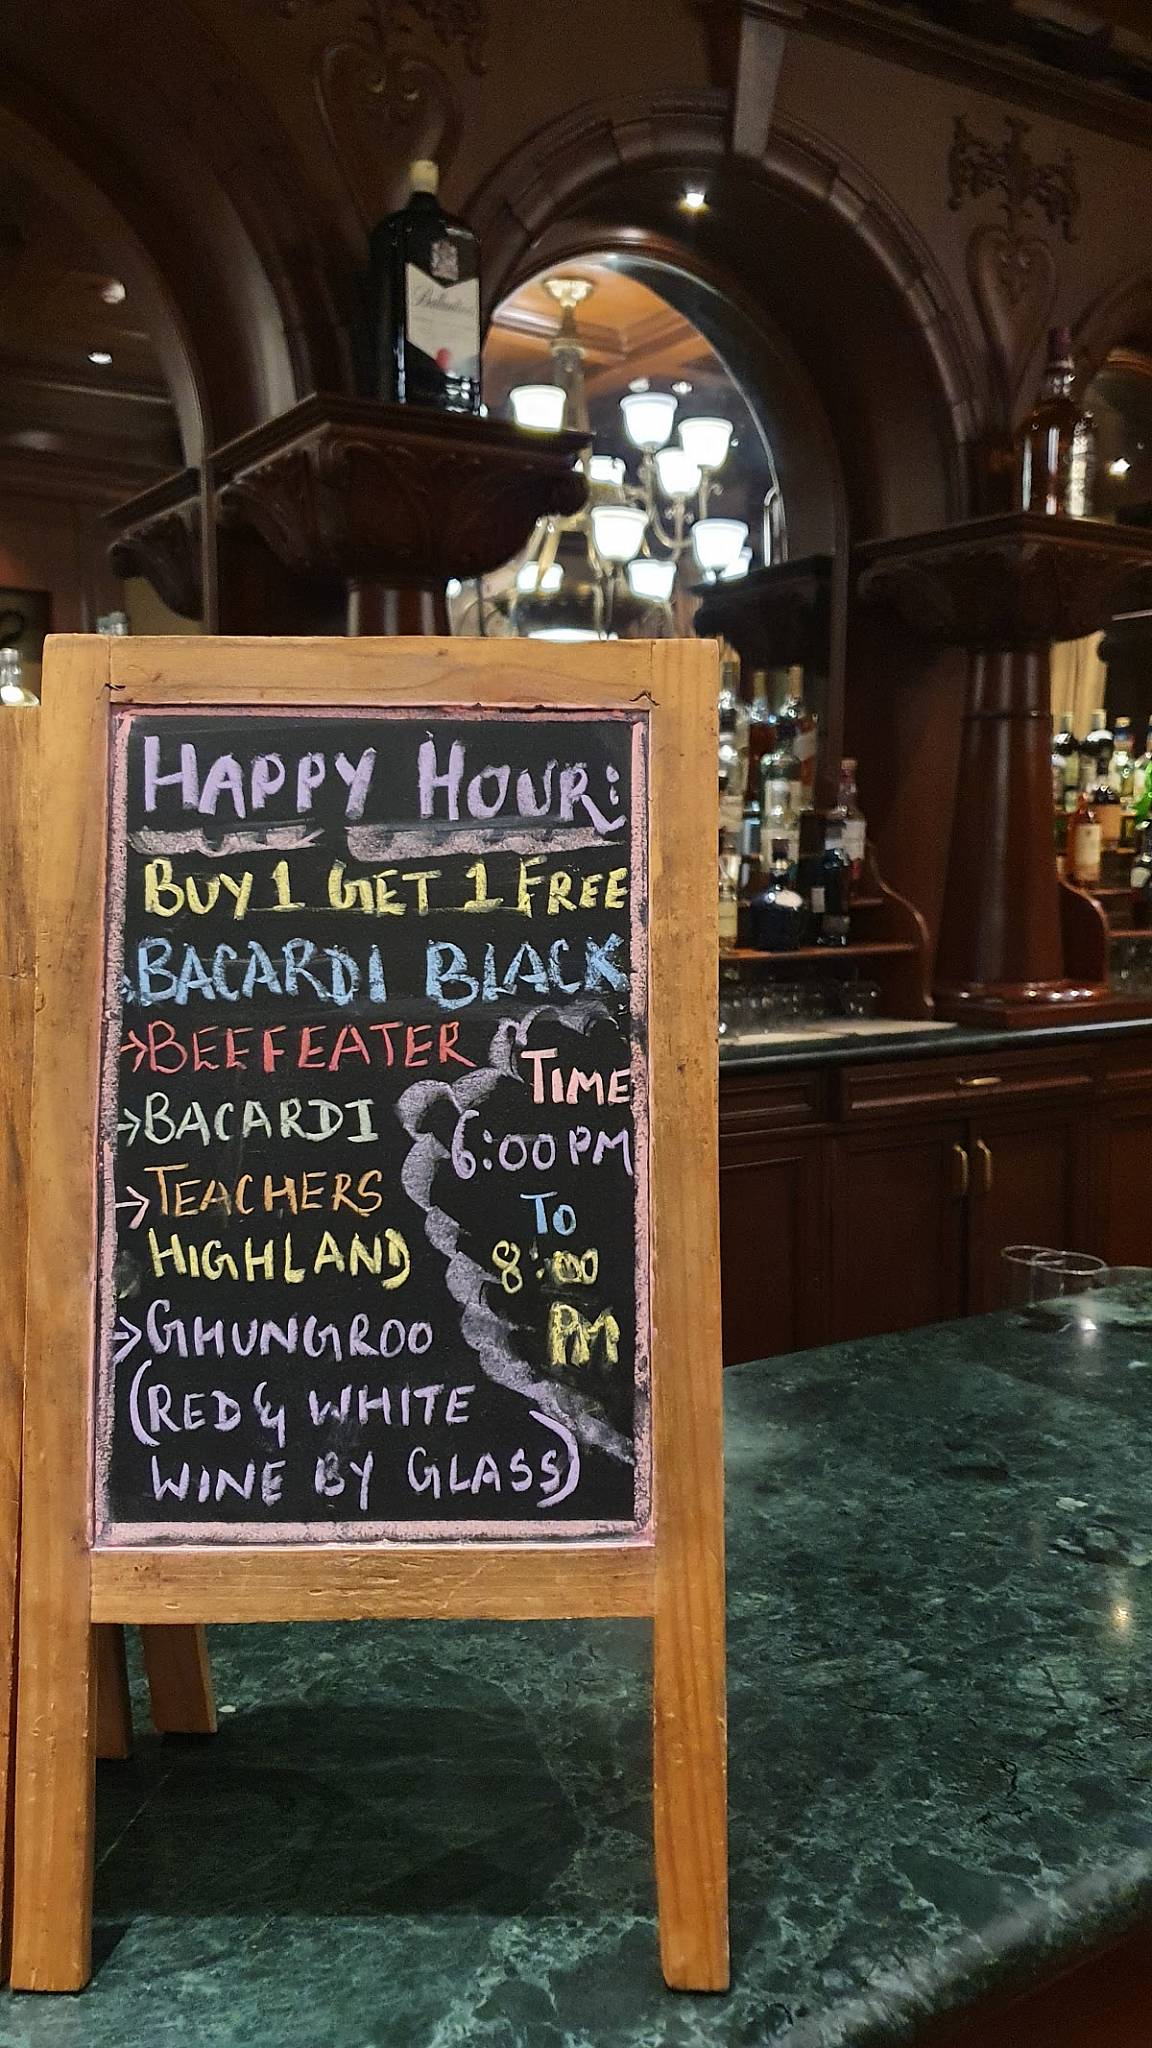 Ballantine's
HAPPY HOUR:
BUY 1 GET 1 FREE
BACARDI BLACK
→BEEFEATER
→BACARDI
→TEACHERS
HIGHLAND
→GHUNGROO
(RED & WHITE
WINE BY GLASS)
TIME
6:00 PM
To
8:00
PM